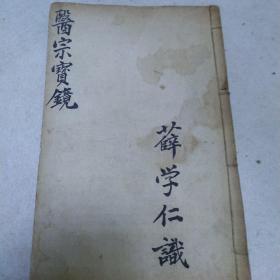 醫宗寳鏡
薛学仁識